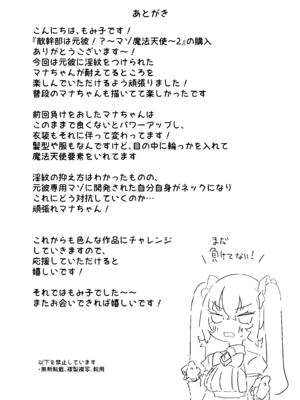 あとがき
こんにちは、もみ子です！
『敵幹部は元彼！？〜マゾ魔法天使〜2』の購入
ありがとうございます〜！
今回は元彼に淫紋をつけられた
マナちゃんが耐えてるところを
楽しんでいただけるよう頑張りました！
普段のマナちゃんも描いてて楽しかったです
前回負けをおしたマナちゃんは
このままで良くないとパワーアップし、
衣装もそれに伴って変わってます！
髪型や服もなんですけど、目の中に輪っかを入れて
魔法天使要素をいれてます
淫紋の抑え方はわかったものの、
元彼専用マゾに開発された自分自身がネックになり
これにどう対抗していくのか…
頑張れマナちゃん！
これからも色んな作品にチャレンジ
していきますので、
応援していただけると
嬉しいです！
それではもみ子でした〜〜
またお会いできれば嬉しいです！
まだ
負けてない！
以下を禁止しています
・無断転載、複製複写、転用